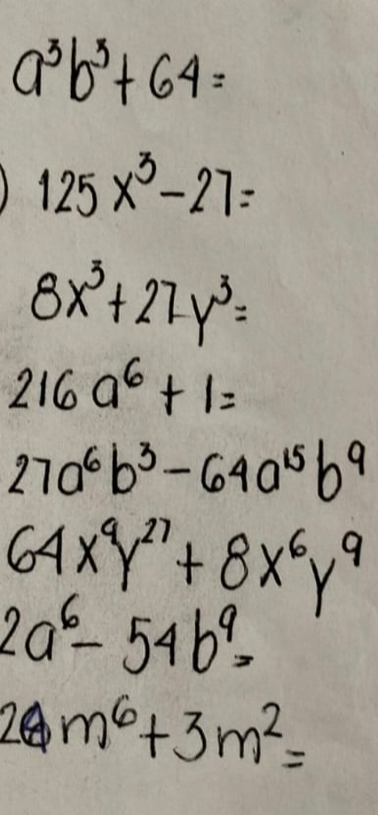 a³b³+64=
) 125x³-27=
8x³+27y³=
216a⁶+1=
27a⁶b³-64a¹⁵b⁹
64x⁹y²⁷+8x⁶y⁹
2a⁶-54b⁹=
24m⁶+3m²=